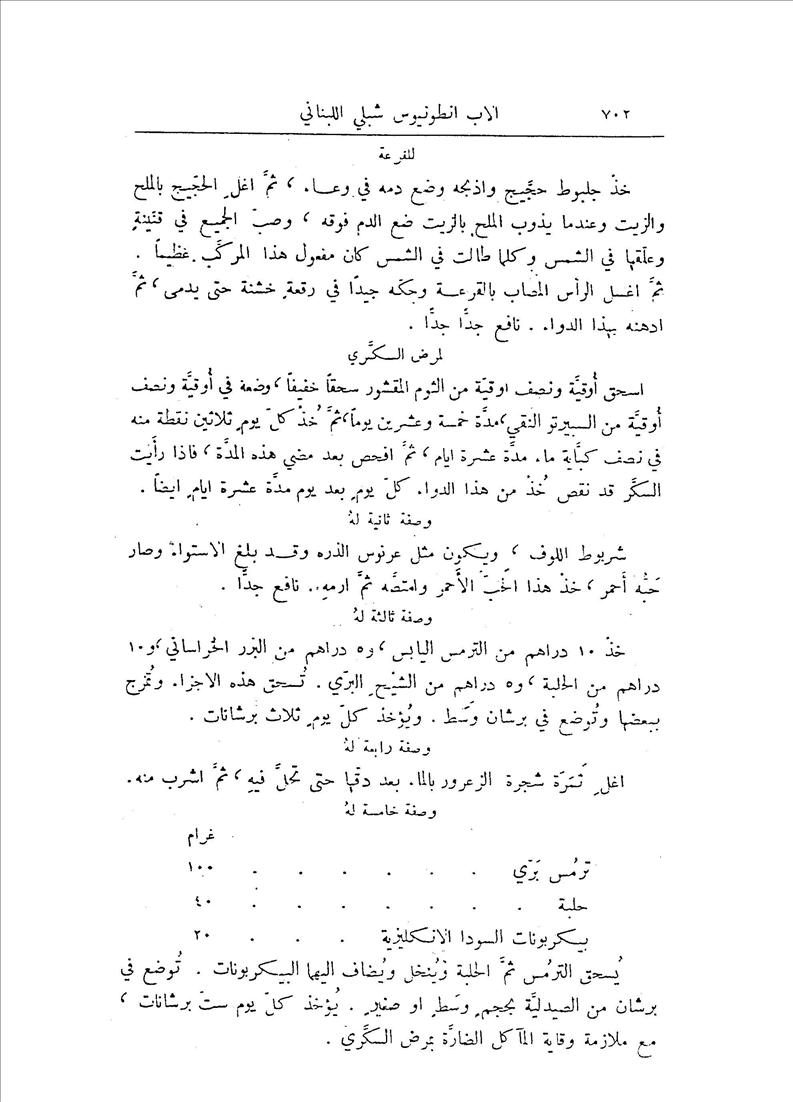 ٧٠٢ الاب انطونيوس شبلي اللبناني
للقرعة
خذْ جلبوط حجّيج واذبحه وضع دمه في وعاء ، ثمَّ اغلِ الحجّيج بالملح
والزيت وعندما يذوب الملح بالزيت ضع الدم فوقه ، وصبّ الجميع في قنّينةٍ
وعلّقها في الشمس وكلما طالت في الشمس كان مفعول هذا المركَّب عظيماً .
ثمَّ اغسل الرأس المصاب بالقرعة وحكّه جيدًا في رقعةٍ خشنة حتى يدمى ، ثمَّ
ادهنه بهذا الدواء . نافع جدًّا جدًّا .
لمرض السكَّري
اسحق أُوقيَّة ونصف اوقيّة من الثوم المقشور سحقاً خفيفاً ، وضعة في أُوقيَّة ونصف
أُوقيَّة من السبيرتو النقي ، مدَّة خمسة وعشرين يوماً ، ثمَّ خُذْ كلّ يومٍ ثلاثين نقطة منه
في نصف كبَّاية ماء مدَّة عشرة ايام ، ثمَّ افحص بعد مضي هذه المدَّة ، فاذا رأَيت
السكَّر قد نقص خُذْ من هذا الدواء كلّ يومٍ بعد يوم مدَّة عشرة ايامٍ ايضاً .
وصفة ثانية لهُ
شربوط اللوف ، ويكون مثل عرنوس الذره وقد بلغ الاستواء وصار
حَبُّه أحمر ، خذْ هذا الحبّ الأَحمر وامتصَّه ثمَّ ارمهِ . نافع جدًّا .
وصفة ثالثة لهُ
خذْ ١٠ دراهم من الترمس اليابس ، و٥ دراهم من البزر الخراساني ، و١٠
دراهم من الحلبة ، و٥ دراهم من الشيْح البرّي . تُسحق هذه الاجزاء وتُمزج
ببعضها وتُوضع في برشان وَسَط . ويُؤخذ كلّ يومٍ ثلاث برشانات .
وصفة رابعة لهُ
اغلِ ثَمَرَة شجرة الزعرور بالماء بعد دقّها حتى تحلَّ فيهِ ، ثمَّ اشرب منه .
وصفة خامسة لهُ
غرام
ترمُس بَرّي . . . . . . ١٠٠
حلبة . . . . . . . ٤٠
بيكربونات السودا الانكليزية . . . ٢٠
يُسحق الترمُس ثمَّ الحلبة ويُنخل ويُضاف اليها البيكربونات . تُوضع في
برشان من الصيدليَّة بحجمٍ وَسَطٍ او صغيرٍ . يُؤخذ كلّ يوم ستّ برشانات ،
مع ملازمة وقاية المآكل الضارَّة بمرض السكَّري .